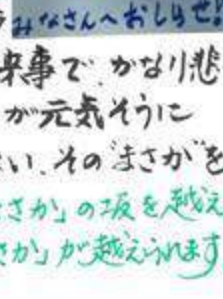 みなさんへおしらせ!
来事で、かなり悲
が元気そうに
い、その"まさか"を
さか」の坂を越え
さか」が越えられます